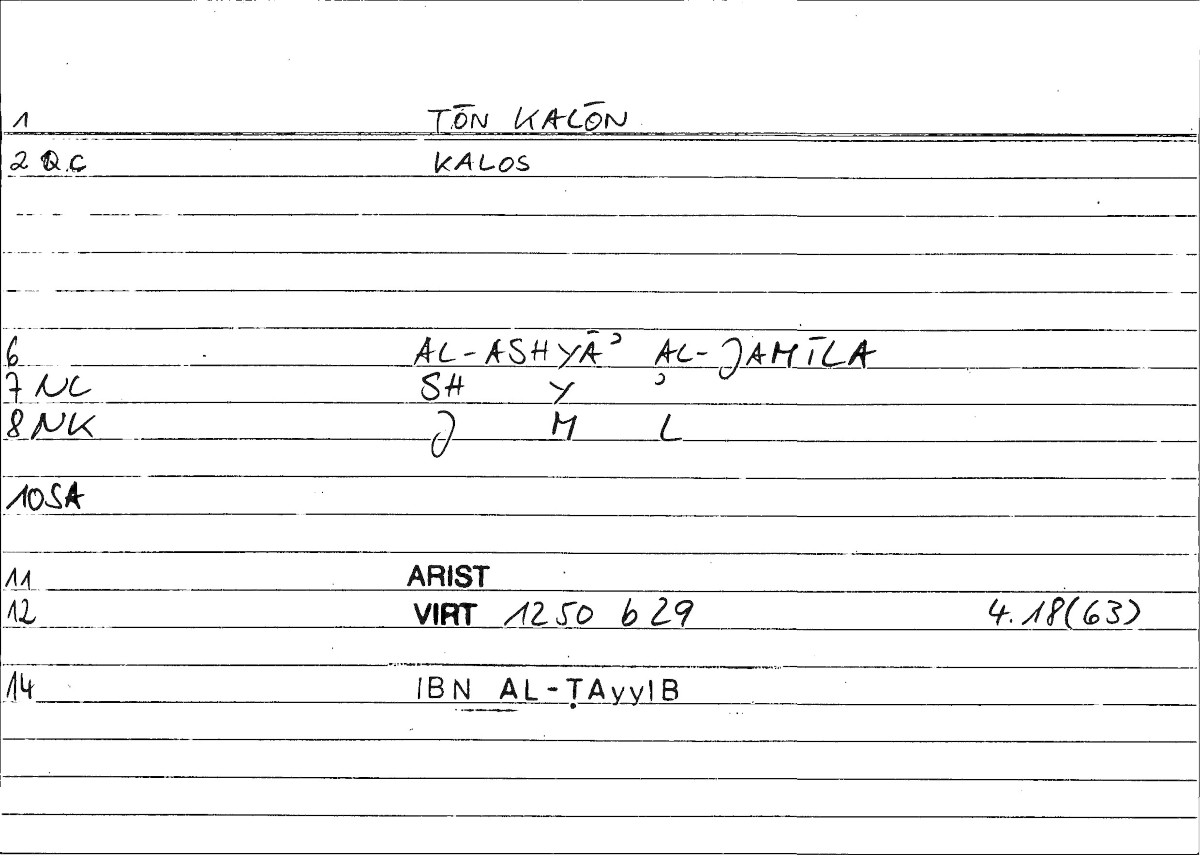 1 TŌN KALŌN
2 Q.C KALOS
6 AL-ASHYĀʾ AL-JAMĪLA
7 NC SH Y ʾ
8 NK J M L
10SA
11 ARIST
12 VIRT 1250 b 29 4.18(63)
14 IBN AL-ṬAyyIB